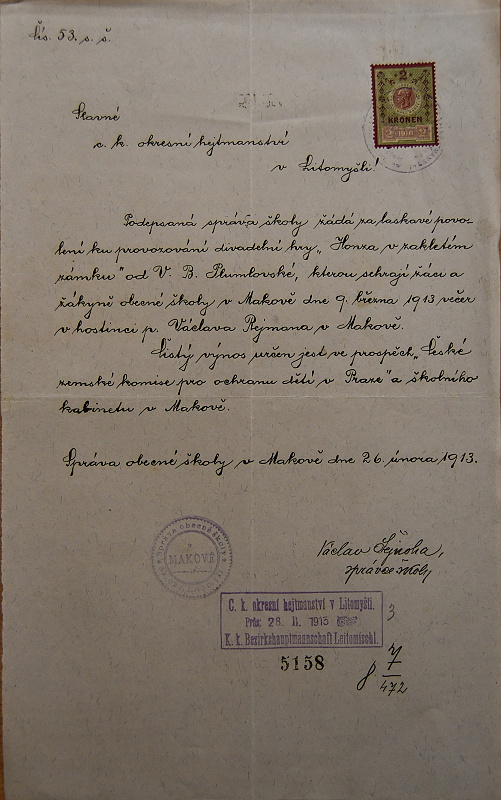 Čís. 53. s. š.
2
KRONEN
2 1910 2
Slavné
c. k. okresní hejtmanství
v Litomyšli!
Podepsaná správa školy žádá za laskavé povo-
lení ku provozování divadelní hry „Honza v zakletém
zámku" od V. B. Plumlovské, kterou sehrají žáci a
žákyně obecné školy v Makově dne 9. března 1913 večer
v hostinci p. Václava Rejmana v Makově.
Čistý výnos určen jest ve prospěch „České
zemské komise pro ochranu dětí v Praze" a školního
kabinetu v Makově.
Správa obecné školy v Makově dne 26. února 1913.
Václav Šejnoha,
správce školy
Správa obecné školy
v
MAKOVĚ
C. k. okresní hejtmanství v Litomyšli.
Präs: 28. II. 1913
K. k. Bezirkshauptmannschaft Leitomischl.
3
5158
7
472